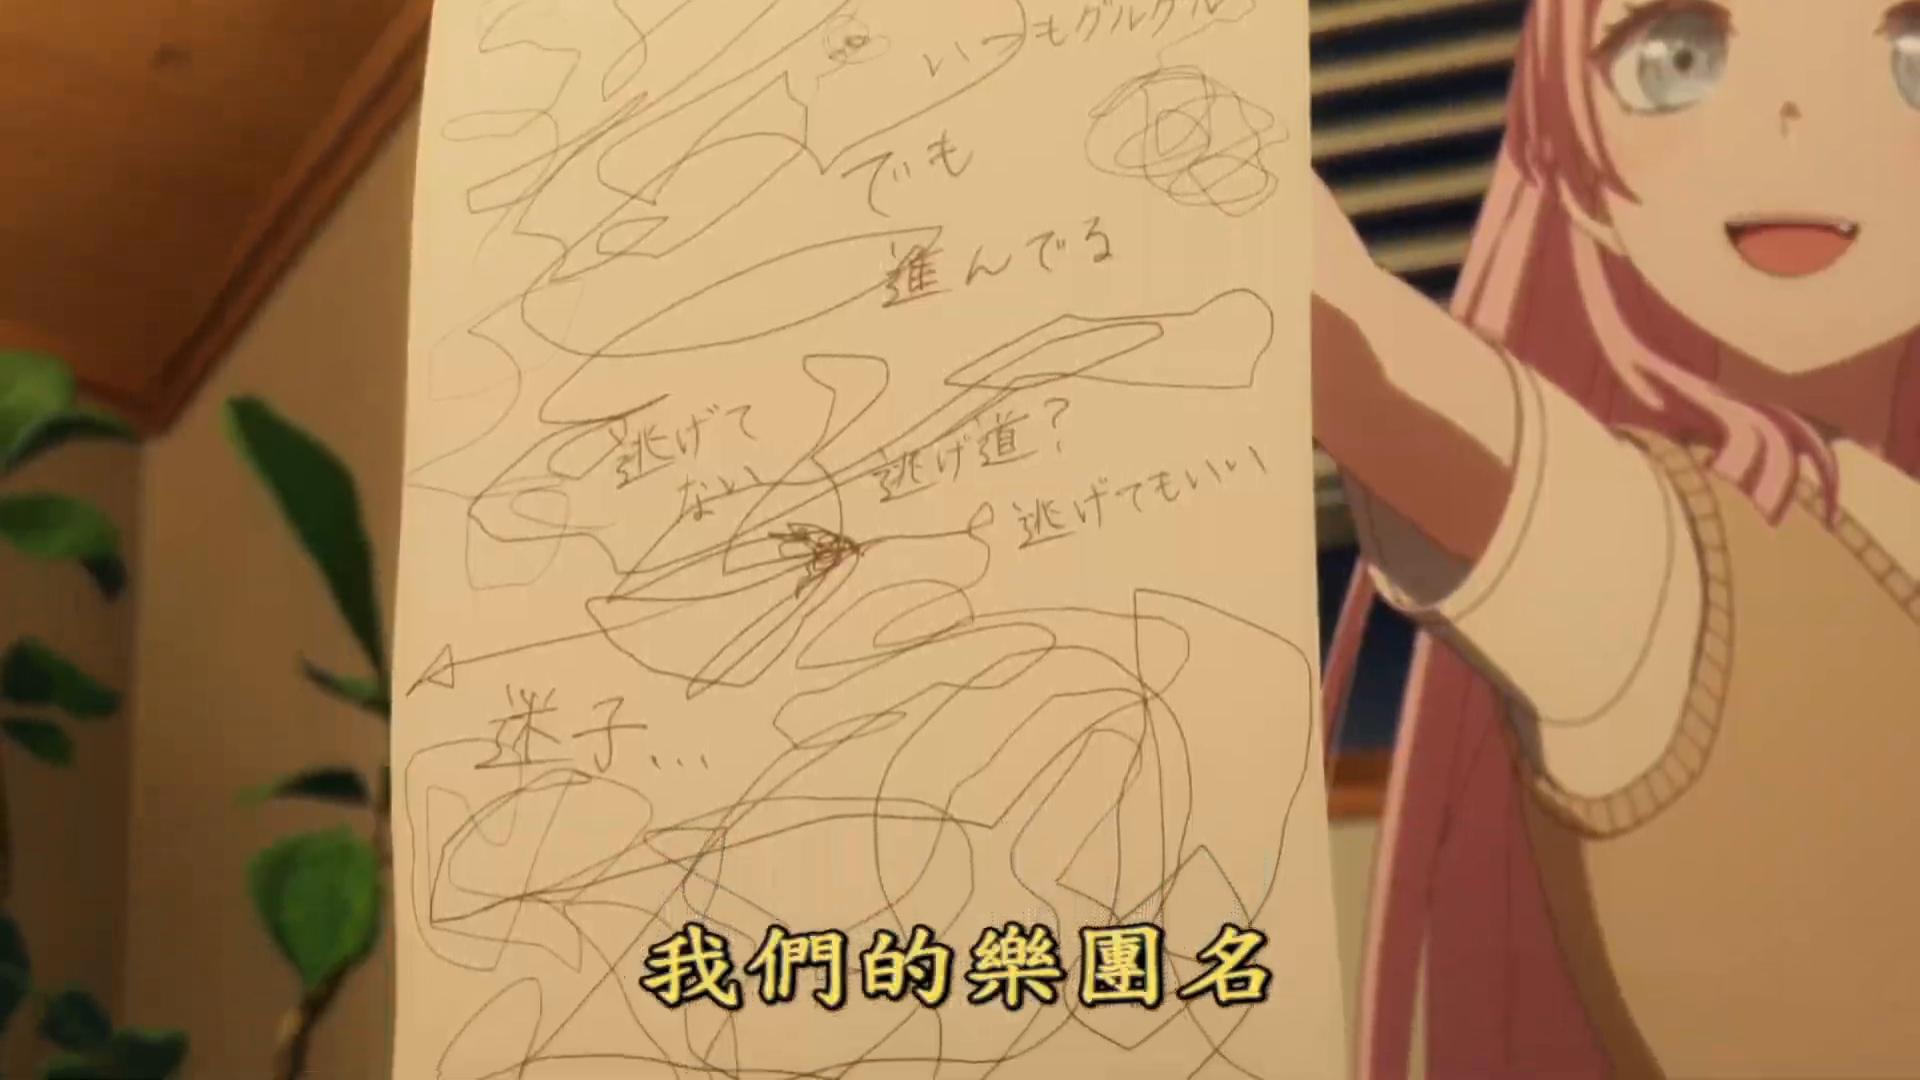 いつもグルグル
でも
進んでる
逃げて
ない
逃げ道？
逃げてもいい
迷子...
我們的樂團名